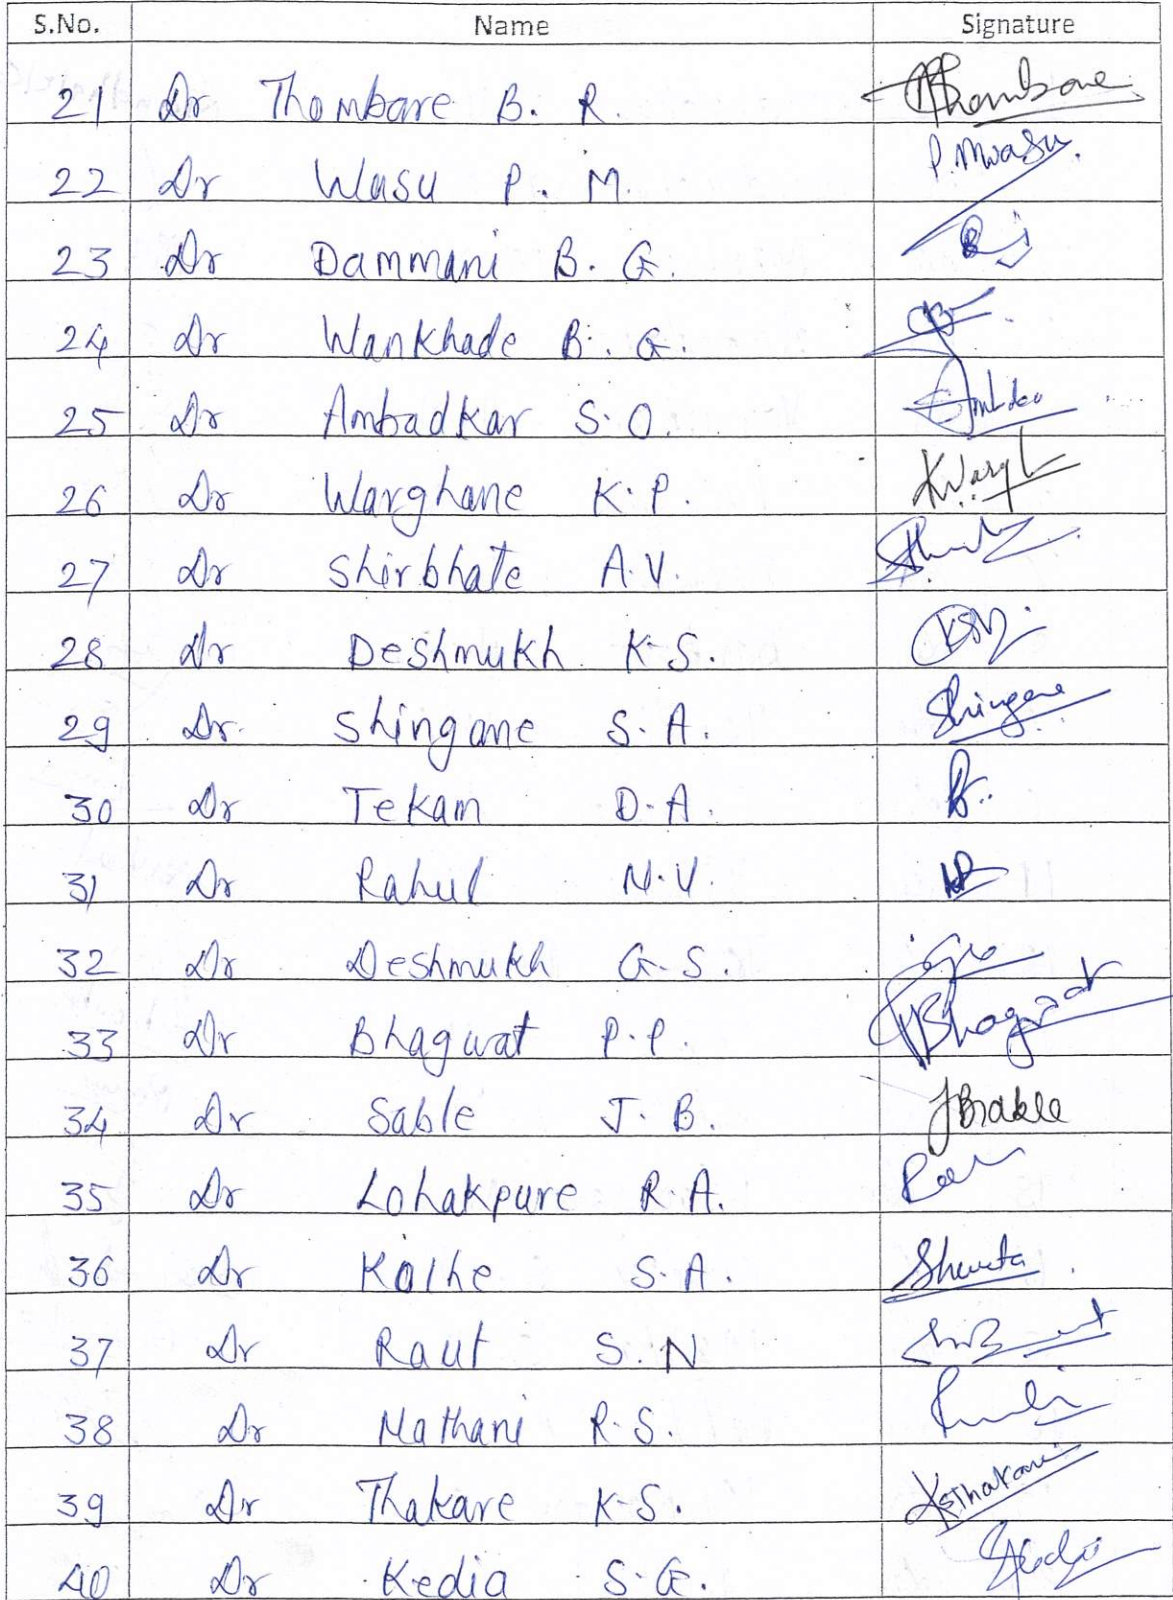 S.No. Name Signature
21 Dr Thombare B. R. Thombare
22 Dr Wasu P. M. P.Mwasu.
23 Dr Dammani B. G.
24 Dr Wankhade B. G.
25 Dr Ambadkar S. O.
26 Dr Warghane K. P.
27 Dr Shirbhate A. V.
28 Dr Deshmukh K. S.
29 Dr. Shingane S. A. Shingane
30 Dr Tekam D. A.
31 Dr Rahul N. V.
32 Dr Deshmukh G. S.
33 Dr Bhagwat P. P. Bhagwat
34 Dr Sable J. B.
35 Dr Lohakpure R. A.
36 Dr Kolhe S. A. Shweta
37 Dr Raut S. N
38 Dr Nathani R. S.
39 Dr Thakare K. S. KSThakare
40 Dr Kedia S. G.